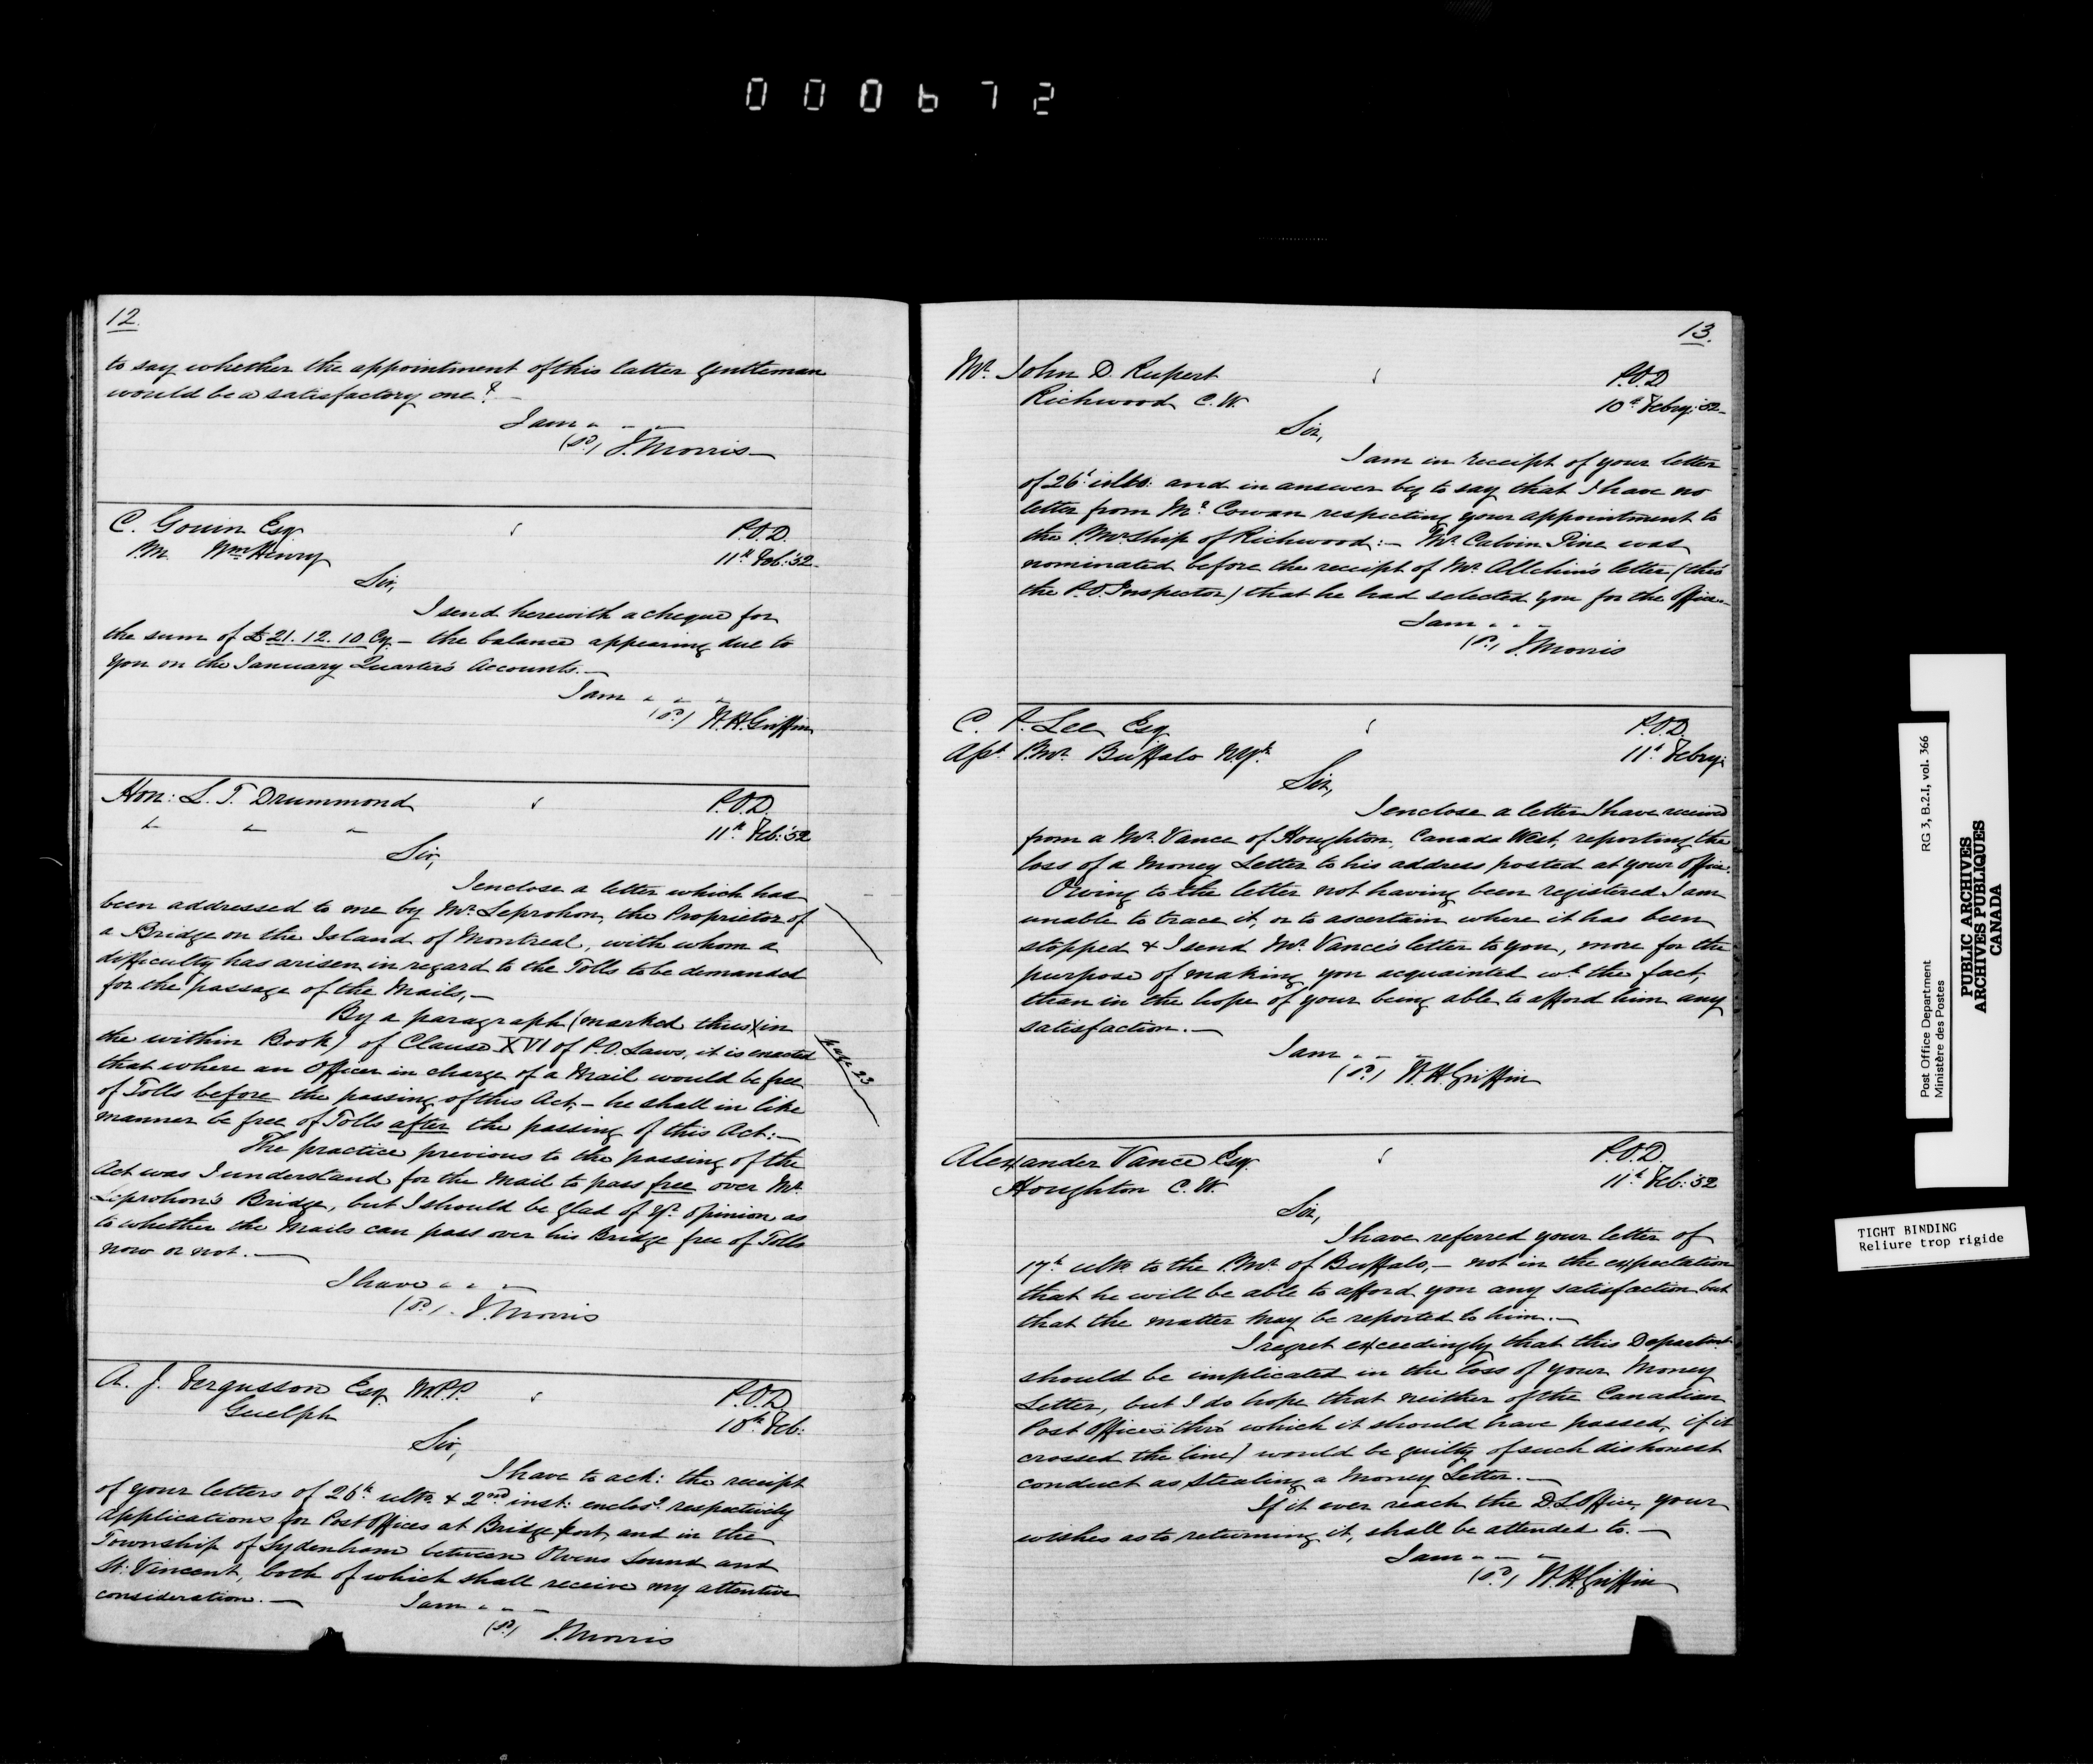 000672
12.
to say whether the appointment of this latter gentleman
would be a satisfactory one? —
I am " - -
(Sd) J. Morris —
C. Gouin Esqr
P.M. Wm Henry
P.O.D.
11th Feb: '52.
Sir,
I send herewith a cheque for
the sum of £21.12.10 Cy. — the balance appearing due to
you on the January Quarter's Accounts. —
I am " " "
(Sd) W. H. Griffin
Hon: L. T. Drummond
" " "
P.O.D.
11th Feb: '52
Sir,
I enclose a letter which has
been addressed to me by Mr. Leprohon, the Proprietor of
a Bridge on the Island of Montreal, with whom a
difficulty has arisen in regard to the Tolls to be demanded
for the passage of the Mails, —
By a paragraph (marked thus X in
the within Book) of Clause XVI of P.O. Laws, it is enacted
that where an Officer in charge of a Mail would be free
of Tolls before the passing of this Act, — he shall in like
manner be free of Tolls after the passing of this Act: —
page 23
The practice previous to the passing of the
Act was I understand for the Mail to pass free over Mr.
Leprohon's Bridge, but I should be glad of yr. opinion as
to whether the Mails can pass over his Bridge free of Tolls
now or not. —
I have " " "
(Sd) J. Morris
A. J. Fergusson Esq. M.P.P.
Guelph
P.O.D.
10th Feb:
Sir,
I have to ack: the receipt
of your letters of 26th ulto. & 2nd inst: enclosg. respectively
Applications for Post Offices at Bridgeport and in the
Township of Sydenham between Owens Sound and
St. Vincent, both of which shall receive my attentive
consideration. —
I am " - -
(Sd) J. Morris
13.
Mr. John D. Rupert
Richwood C.W.
P.O.D.
10th Febry: '52
Sir,
I am in receipt of your letter
of 26th ulto: and in answer beg to say that I have no
letter from Mr. Cowan respecting your appointment to
the P.Mr.ship of Richwood: — Mr. Calvin Pine was
nominated before the receipt of Mr. Allchin's letter (thro'
the P.O. Inspector) that he had selected you for the office —
I am " " "
(Sd) J. Morris
C. P. Lee Esq
Apt. P.Mr. Buffalo N.Yk.
P.O.D.
11th Febry:
Sir,
I enclose a letter I have received
from a Mr. Vance of Houghton, Canada West, reporting the
loss of a Money Letter to his address posted at your office.
Owing to the letter not having been registered I am
unable to trace it, or to ascertain where it has been
stopped & I send Mr. Vance's letter to you, more for the
purpose of making you acquainted wt. the fact,
than in the hope of your being able to afford him any
satisfaction. —
I am " - -
(Sd) W. H. Griffin
Alexander Vance Esq.
Houghton C.W.
P.O.D.
11th Feb: '52
Sir,
I have referred your letter of
17th ulto. to the P.Mr. of Buffalo, — not in the expectation
that he will be able to afford you any satisfaction but
that the matter may be reported to him. —
I regret exceedingly that this Departmt.
should be implicated in the loss of your Money
Letter, but I do hope that neither of the Canadian
Post Offices (thro' which it should have passed, if it
crossed the line) would be guilty of such dishonest
conduct as stealing a Money Letter. —
If it ever reach the D.L. Office, your
wishes as to returning it, shall be attended to. —
I am - - -
(Sd) W. H. Griffin
Post Office Department RG 3, B.2.I, vol. 366
Ministère des Postes
PUBLIC ARCHIVES
ARCHIVES PUBLIQUES
CANADA
TIGHT BINDING
Reliure trop rigide